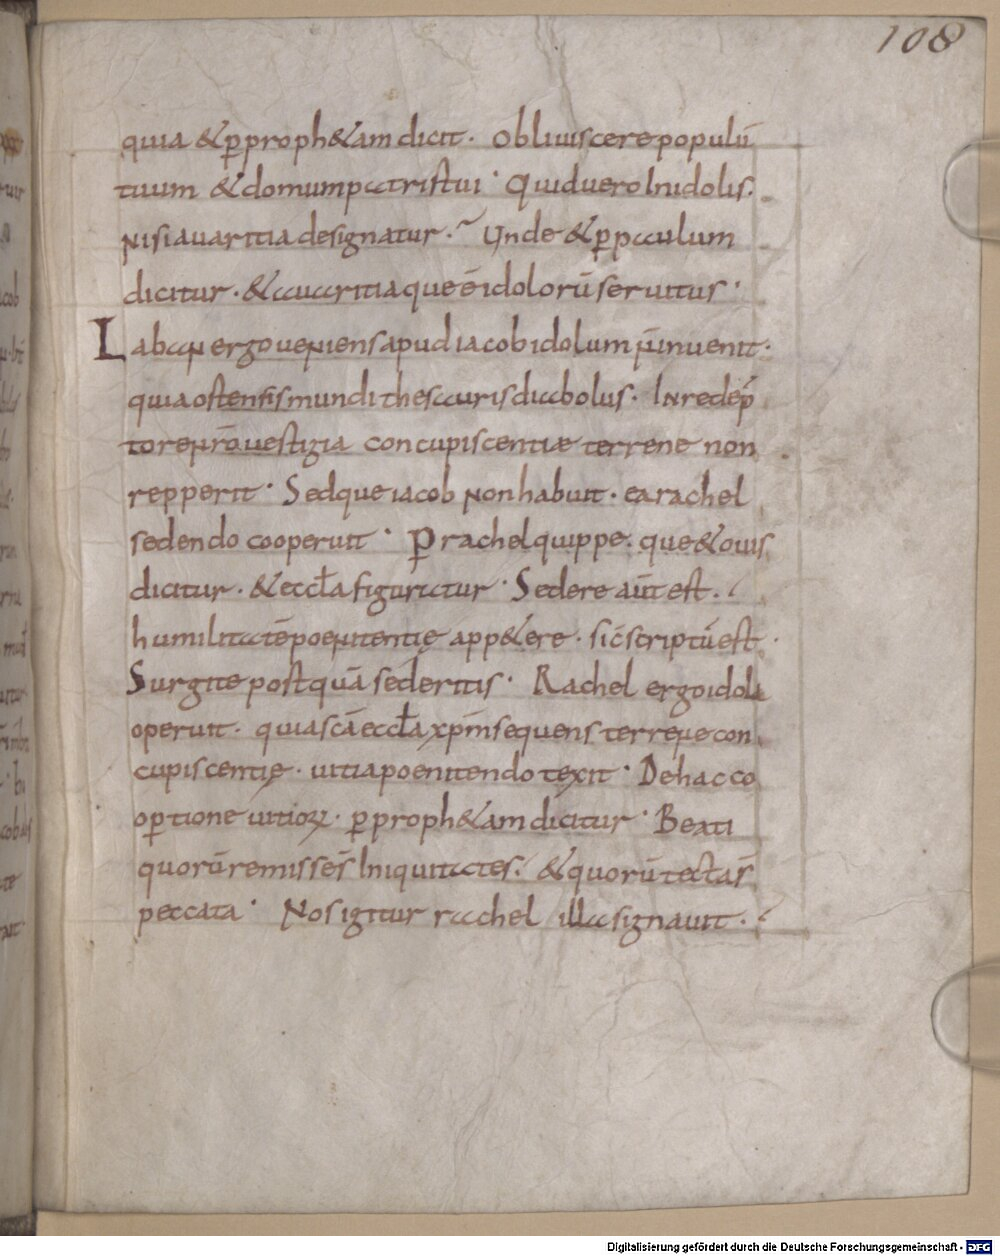 108
quia & p̱ proph&am dicit · Obliuiscere populū
tuum & domum patris tui · Quid uero In idolis ·
Nisi auaritia designatur · Unde & p̱ paulum
dicitur · & auaritia que ē idolorū seruitus ·
Laban ergo ueniens apud iacob idolum ñ inuenit ·
quia ostensis mundi thesauris diabolus · In redēp
tore nr̄o uestigia concupiscentiæ terrene non
repperit · Sed que iacob Non habuit · ea rachel
sedendo cooperuit · P̱ rachel quippe · que & ouis
dicitur · & eccl̄a figuratur · Sedere aūt est ·
humilitatē poenitentię app&ere · sic̄ scriptū est ·
Surgite postquā sederitis · Rachel ergo idola
operuit · quia sc̄a eccl̄a xp̄m sequens terrene con
cupiscentię · uitia poenitendo texit · De hac co
op̱tione uitioꝝ · p̱ proph&am dicitur · Beati
quorū remisse s̄ Iniquitates · & quorū tecta s̄
peccata · Nos igitur rachel illa signauit ·
Digitalisierung gefördert durch die Deutsche Forschungsgemeinschaft - DFG